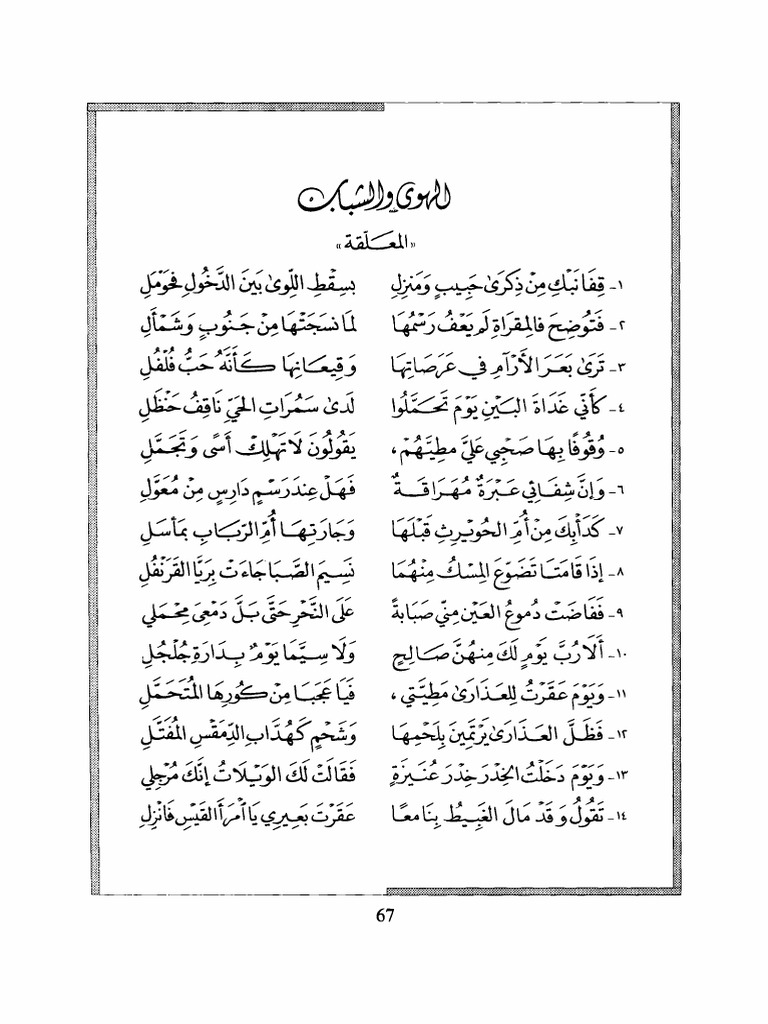 الهوى والشباب
«المعلّقة»
١- قِفَا نَبْكِ مِنْ ذِكرَىٰ حَبِيبٍ وَمَنزِلِ بِسِقْطِ اللِّوىٰ بَينَ الدَّخُولِ فَحَوْمَلِ
٢- فَتُوضِحَ فالمِقراةِ لَم يَعْفُ رَسْمُهَا لما نسَجَتْهَا مِنْ جَنُوبٍ وَشَمْأَلِ
٣- تَرَىٰ بَعَرَ الأَرْآمِ في عَرَصَاتِهَا وَقِيعَانِهَا كَأَنَّهُ حَبُّ فُلْفُلِ
٤- كَأَنّي غَدَاةَ البَيْنِ يَوْمَ تَحَمَّلُوا لَدىٰ سَمُرَاتِ الحَيّ نَاقِفُ حَنْظَلِ
٥- وُقُوفًا بِهَا صَحْبِي عَلَيَّ مَطِيَّهُمْ، يَقُولُونَ لَا تَهْلِكْ أَسًى وَتَجَمَّلِ
٦- وَإنَّ شِفَائي عَبْرَةٌ مُهَرَاقَةٌ فَهَلْ عِندَ رَسْمٍ دَارِسٍ مِنْ مُعَوَّلِ
٧- كَدَأْبِكَ مِنْ أُمِّ الحُوَيْرِثِ قَبْلَهَا وَجَارَتِهَا أُمِّ الرَّبَابِ بِمَأْسَلِ
٨- إذَا قَامَتَا تَضَوّعَ المِسْكُ مِنْهُمَا نَسِيمَ الصَّبَا جَاءَتْ بِرَيَّا القَرَنْفُلِ
٩- فَفَاضَتْ دُمُوعُ العَيْنِ مِنّي صَبَابَةً عَلَى النَّحْرِ حَتَّى بَلَّ دَمْعِيَ مِحْمَلي
١٠- أَلَا رُبَّ يَوْمٍ لَكَ مِنهُنَّ صَالِحٍ وَلَا سِيَّمَا يَوْمٌ بِدَارَةِ جُلْجُلِ
١١- وَيَوْمَ عَقَرْتُ لِلعَذَارَىٰ مَطِيَّتي، فَيَا عَجَبَا مِنْ كُورِهَا المُتَحَمَّلِ
١٢- فَظَلَّ العَذَارَىٰ يَرْتَمِينَ بِلَحْمِهَا وَشَحْمٍ كَهُدَّابِ الدِّمَقْسِ المُفَتَّلِ
١٣- وَيَوْمَ دَخَلْتُ الخِدْرَ خِدْرَ عُنَيْزَةٍ فَقَالَتْ لَكَ الوَيْلَاتُ إنَّكَ مُرْجِلي
١٤- تَقُولُ وَقَدْ مَالَ الغَبِيطُ بِنَا مَعًا عَقَرْتَ بَعِيرِي يَا امْرَأَ القَيْسِ فَانْزِلِ
67